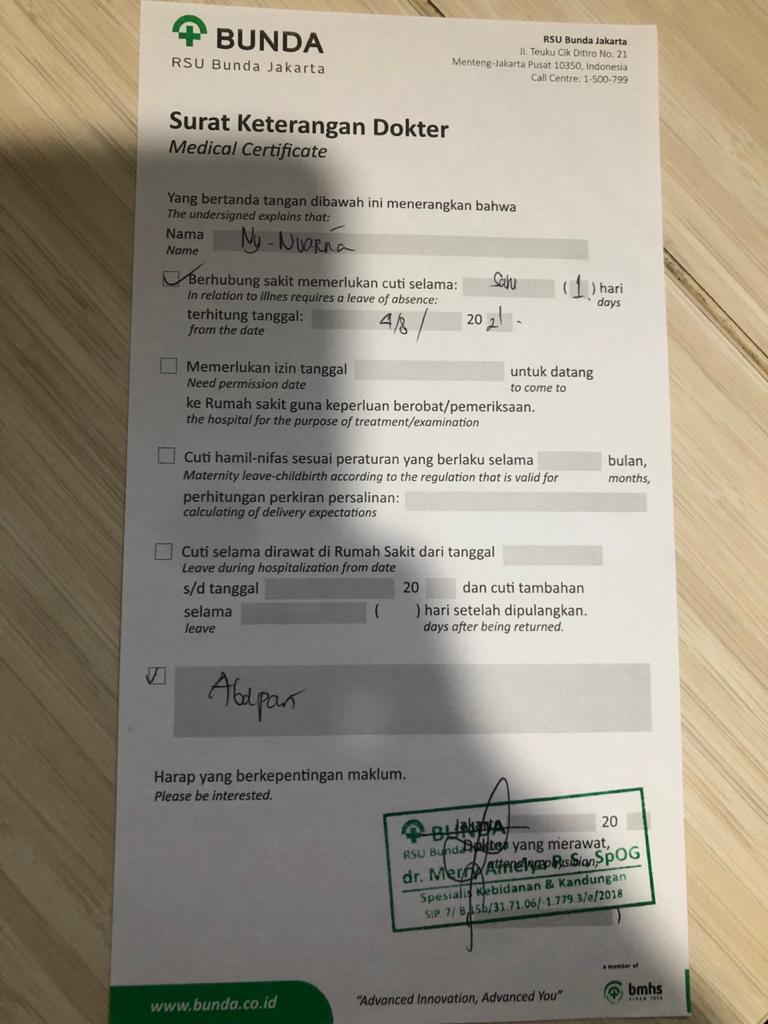 BUNDA
RSU Bunda Jakarta
RSU Bunda Jakarta
Jl. Teuku Cik Ditiro No. 21
Menteng-Jakarta Pusat 10350, Indonesia
Call Centre: 1-500-799
Surat Keterangan Dokter
Medical Certificate
Yang bertanda tangan dibawah ini menerangkan bahwa
The undersigned explains that:
Nama Ny-
Name
Berhubung sakit memerlukan cuti selama: Satu (1) hari
In relation to illnes requires a leave of absence: days
terhitung tanggal: 4/8/ 2021-
from the date
Memerlukan izin tanggal untuk datang
Need permission date to come to
ke Rumah sakit guna keperluan berobat/pemeriksaan.
the hospital for the purpose of treatment/examination
Cuti hamil-nifas sesuai peraturan yang berlaku selama bulan,
Maternity leave-childbirth according to the regulation that is valid for months,
perhitungan perkiran persalinan:
calculating of delivery expectations
Cuti selama dirawat di Rumah Sakit dari tanggal
Leave during hospitalization from date
s/d tanggal 20 dan cuti tambahan
selama ( ) hari setelah dipulangkan.
leave days after being returned.
Harap yang berkepentingan maklum.
Please be interested.
Jakarta 20
Dokter yang merawat,
attending physician,
BUNDA
RSU Bunda
dr. Merry Amelya P.S., SpOG
Spesialis Kebidanan & Kandungan
www.bunda.co.id
"Advanced Innovation, Advanced You"
a member of
bmhs